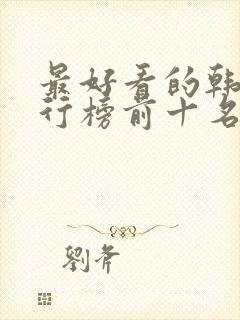 最好看的韩
行榜前十名
劉斧